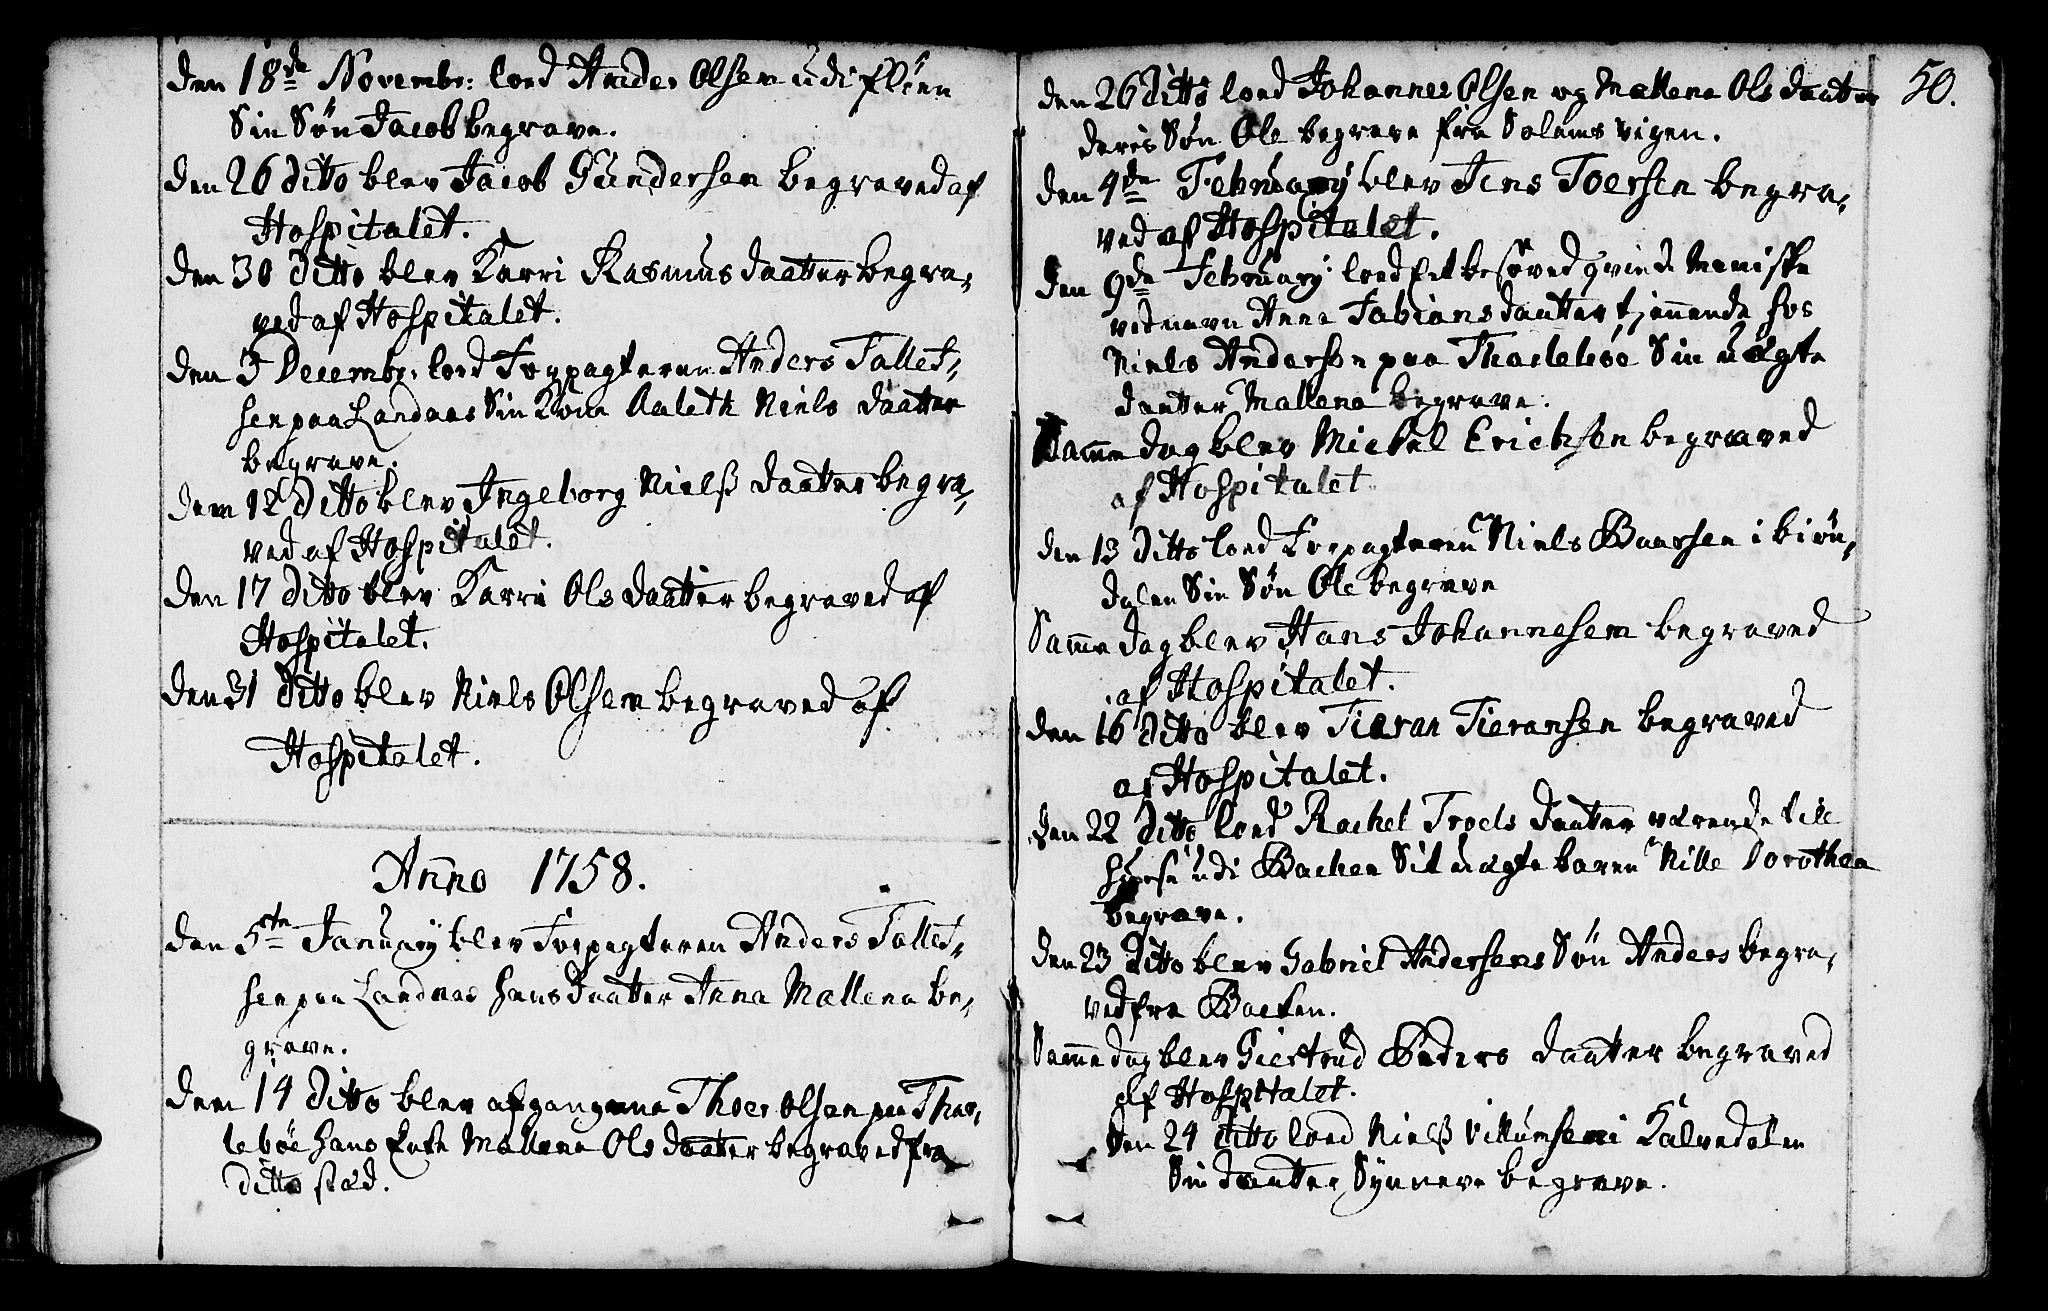 Den 18de Novembr: loed Andes Olsen udi fleen
Sin Søn Jacob begrave.
Den 26 Ditto blev Jacob Gundersen begraved af
Hospitalet.
Den 30 Ditto blev Karri Rasmusdaatter begra,
ved af Hospitalet.
Den 3 Decembr. loed Forpagteren Anders Tallef,,
sen paa Landaas Sin Kone Aaleth Niels Daatter
begrave.
Den 12 Ditto blev Ingeborg Nielß Daatter begra,
ved af Hospitalet.
Den 17 Ditto blev Karri Ols Daatter begraved af
Hospitalet.
Den 31 Ditto blev Niels Olsen begraved af
Hospitalet.
Anno 1758.
Den 5te January blev Forpagteren Anders Tallef,,
sen paa Landaas hans Daatter Anna Mallena be,
grave.
Den 14 Ditto blev afgangne Thoer Olsen paa Thar,
lebøe hans Enke Mallena Ols Daatter begraved fra
ditto stæd.
50.
Den 26 Ditto loed Johannes Olsen og Mallena Ols daatter
deris Søn Ole begrave fra Solems vigen.
Den 4de February blev Jens Toersen begra,
ved af Hospitalet.
Den 9de February: loed Eet besøved qvinde Meniske
ved navn Anna Fabiansdaatter tjennende hos
Niels Andersen paa Tharlebøe Sin uægte
daatter Mallena begrave.
Samme dag blev Michel Erichsen begraved
af Hospitalet
Den 13 Ditto loed Forpagteren Niels Baarsen i biøn,
dalen Sin Søn Ole begrave
Samme dag blev Hans Johannesen begraved
af Hospitalet.
Den 16 Ditto blev Tieran Tieransen begraved
af Hospitalet.
Den 22 Ditto loed Rachel Troels Daatter værende till
huuse udi Backen Sit uægte baren Nille Dorothea
begrave.
Den 23 Ditto blev Gabriel Andersens Søn Anders begra,
ved fra Backen.
Samme dag blev Giertrud Peders Daatter begraved
af Hospitalet.
Den 24 Ditto loed Nielß Villumsen i Kalvedalen
Sin daatter Synneve begrave.